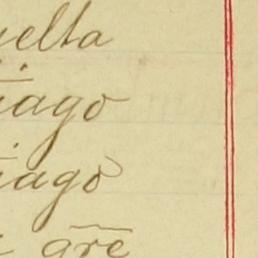 uelta
iago
iago
gre